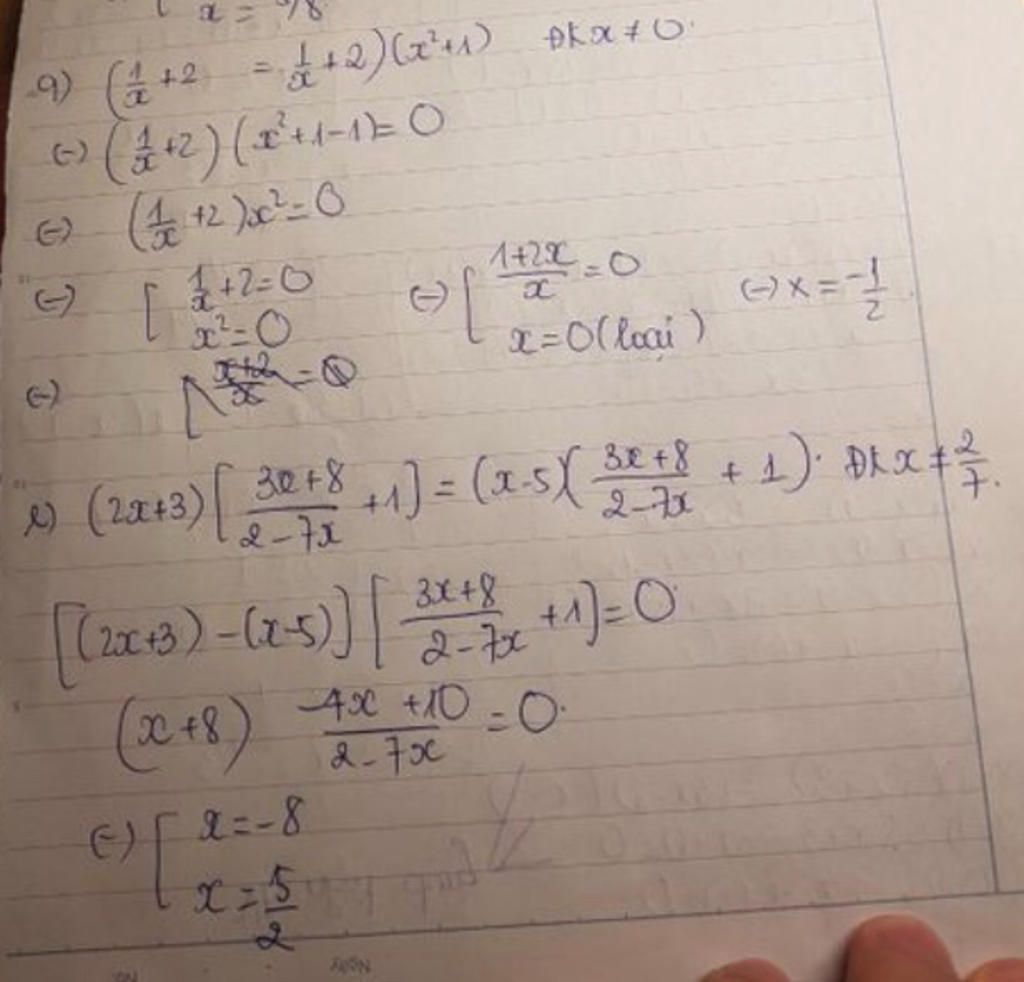 x = 5/8
q) (1/x + 2 = 1/x + 2)(x²+1) ĐK x ≠ 0.
(-) (1/x + 2)(x²+1-1) = 0
(-) (1/x + 2)x² = 0
(-) [ 1/x + 2 = 0 (-) [ (1+2x)/x = 0 (-) x = -1/2.
x² = 0 x = 0 (loại)
(-) [ (x+2)/x = 0
r) (2x+3)[(3x+8)/(2-7x) + 1] = (x-5)((3x+8)/(2-7x) + 1). ĐK x ≠ 2/7.
[(2x+3) - (x-5)][(3x+8)/(2-7x) + 1] = 0.
(x+8) (-4x+10)/(2-7x) = 0.
(-) [ x = -8
x = 5/2
Ngày
No.